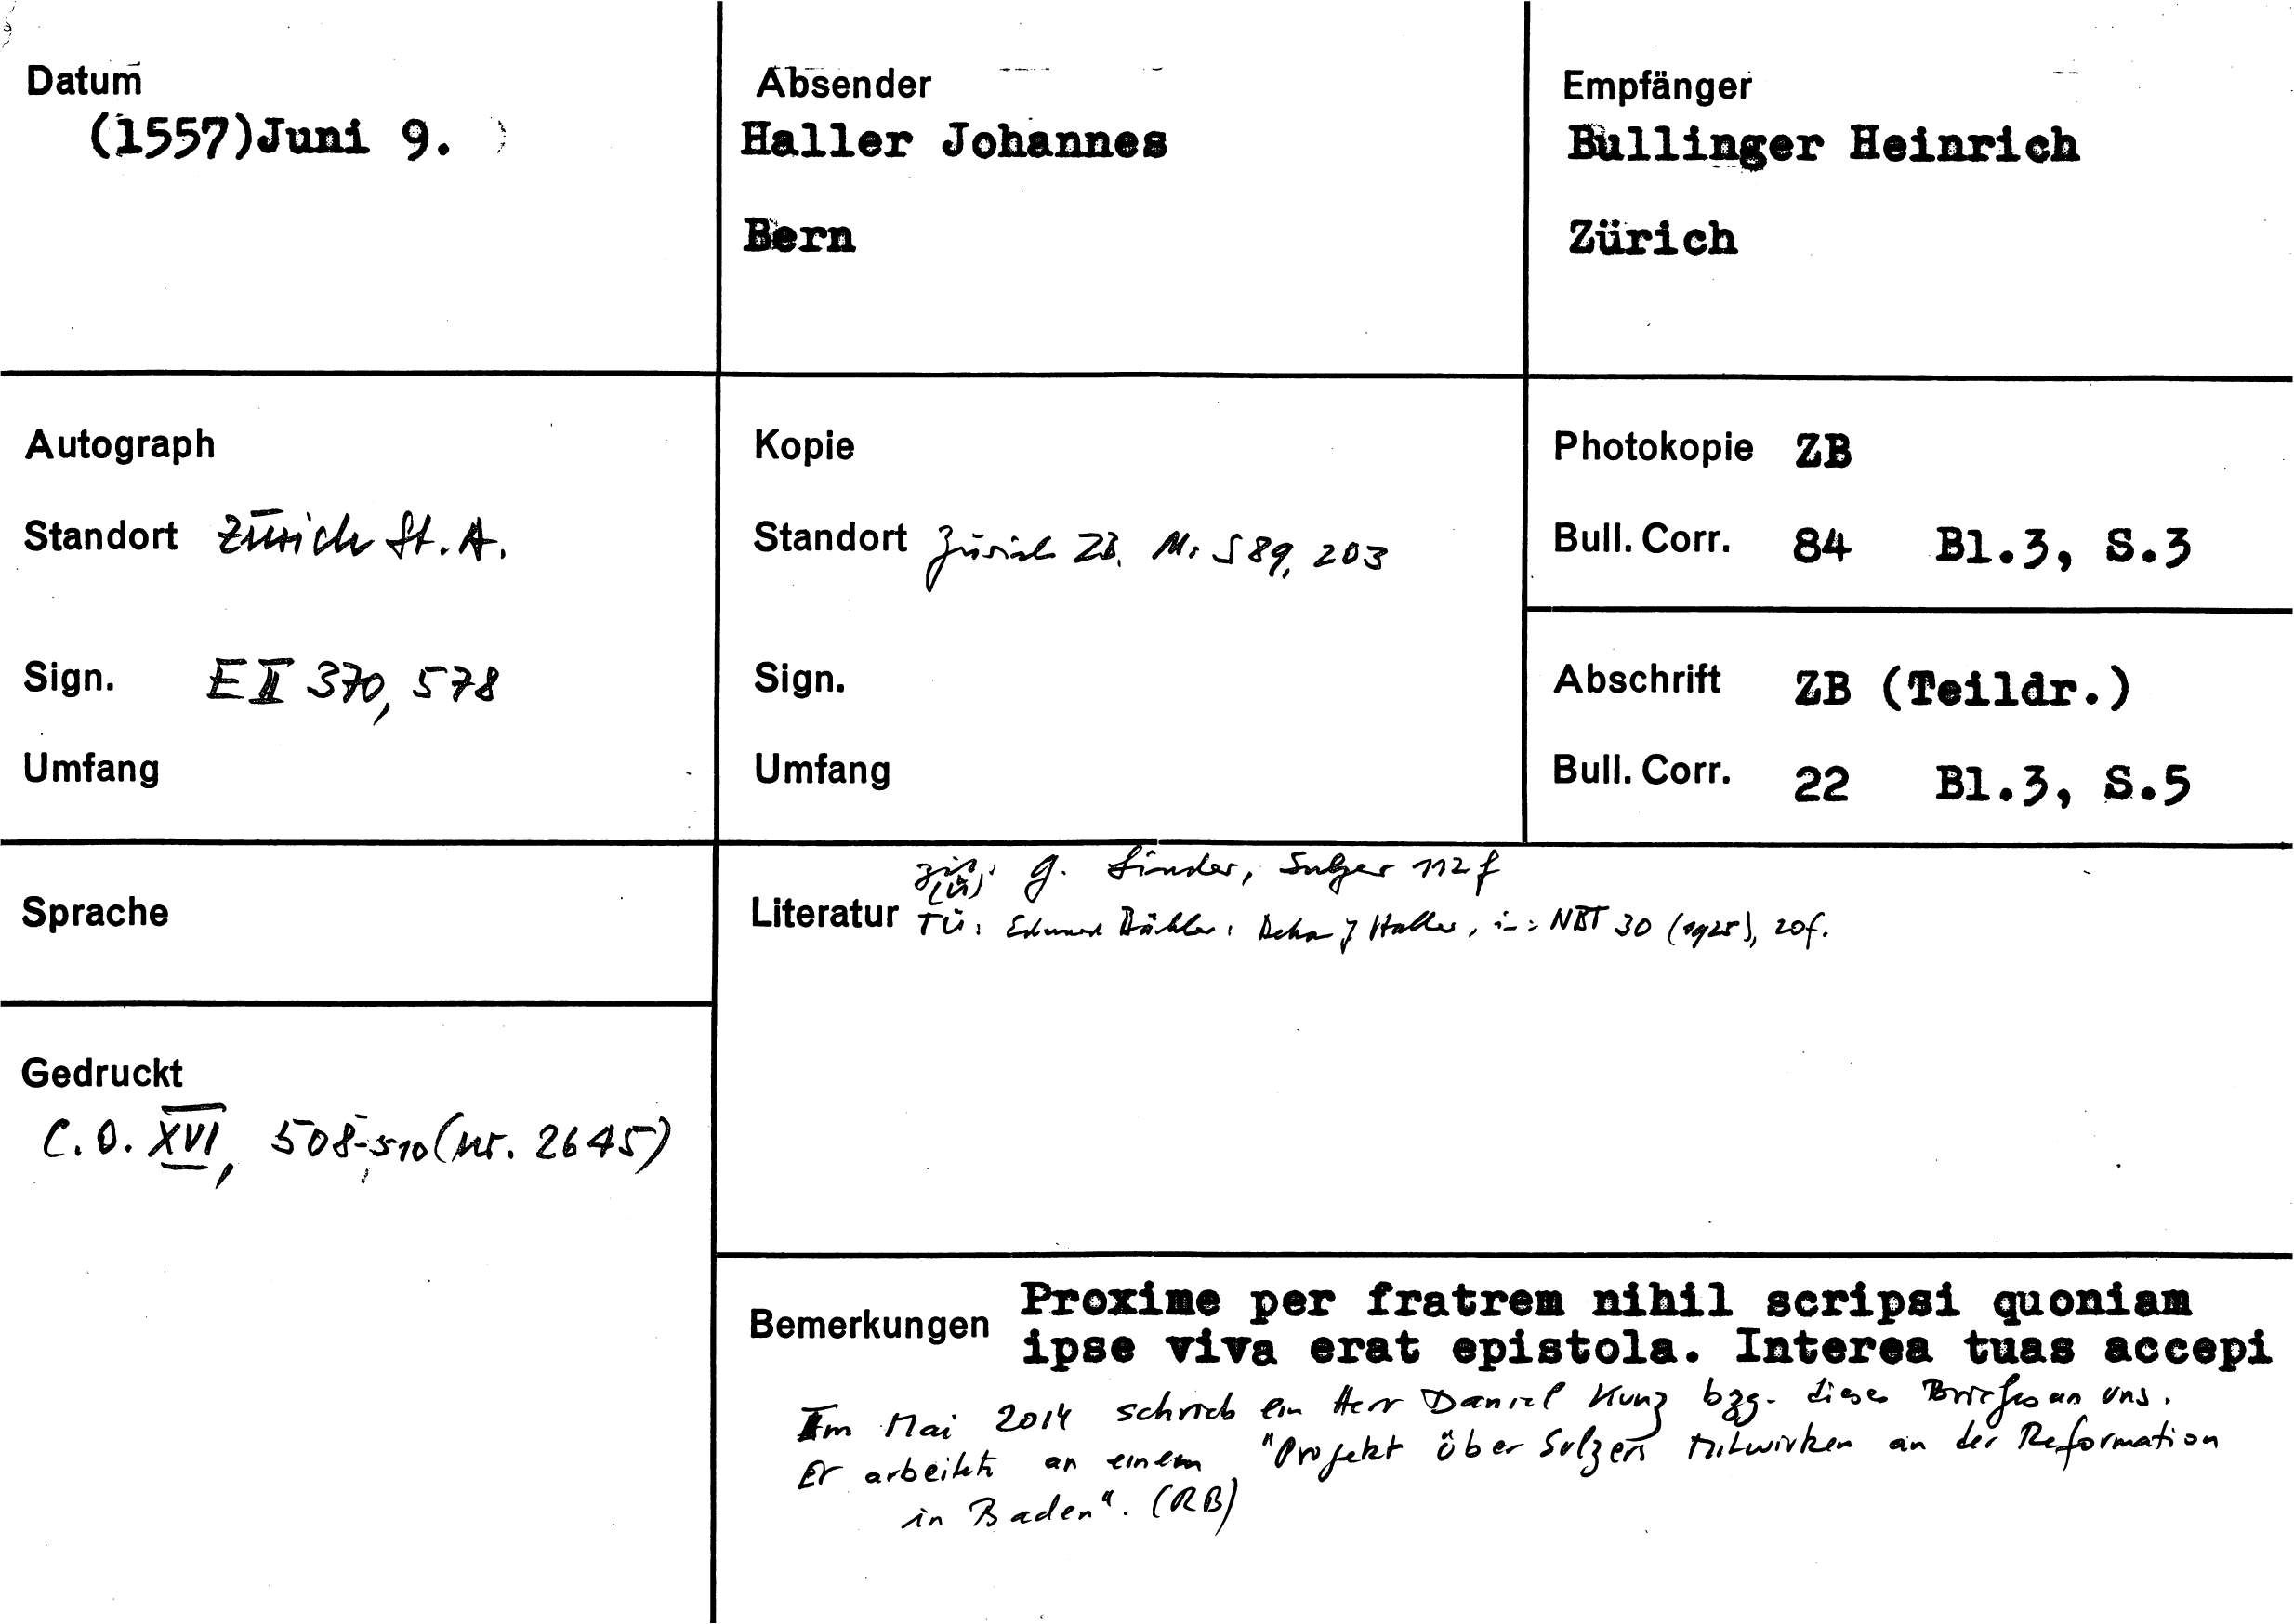 Datum
(1557)Juni 9.
Absender
Haller Johannes
Bern
Empfänger
Bullinger Heinrich
Zürich
Autograph
Standort Zürich St. A.
Sign. E II 370, 578
Umfang
Kopie
Standort Zürich ZB. Ms S 89, 203
Sign.
Umfang
Photokopie ZB
Bull. Corr. 84 Bl.3, S.3
Abschrift ZB (Teildr.)
Bull. Corr. 22 Bl.3, S.5
Sprache
Gedruckt
C.O. XVI, 508-510 (Nr. 2645)
zit. G. Linder, Sulzer 112 f
(Ü)
Literatur TÜ: Eduard Bähler: Dekan J Haller, in: NBT 30 (1925), 20f.
Bemerkungen Proxime per fratrem nihil scripsi quoniam
ipse viva erat epistola. Interea tuas accepi
Im Mai 2014 schrieb ein Herr Daniel Kunz bzg. dieses Briefes an uns.
Er arbeitete an einem "Projekt über Sulzers Mitwirken an der Reformation
in Baden". (RB)